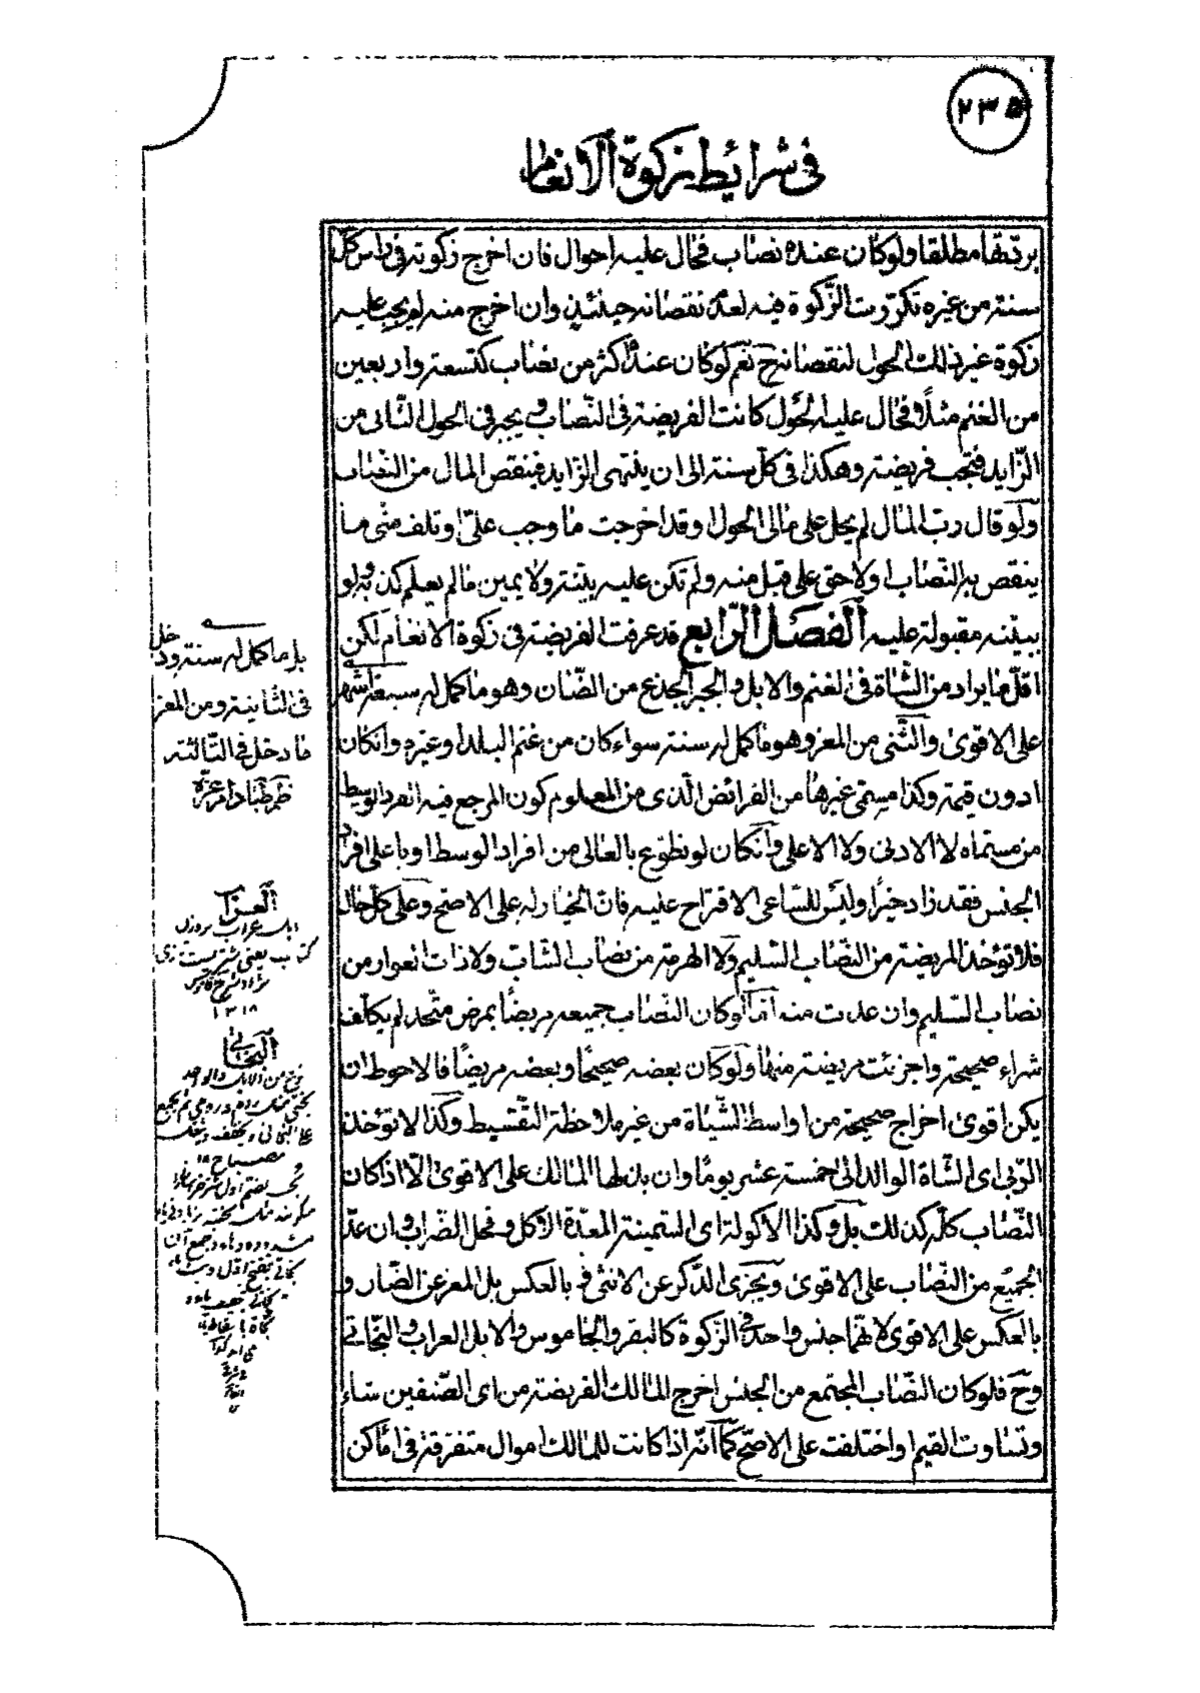 ٢٣٥
فى شرايط زكوة الانعام
بردّتها مطلقا ولو كان عنده نصاب فحال عليه احوال فان اخرج زكوته فى راس كلّ
سنته من غيره تكرّرت الزّكوة فيه لعدم نقصانه حينئذٍ وان اخرج منه لم يجب عليه
زكوة غير ذلك الحول لنقصانه ح نعم لو كان عنده اكثر من نصاب كتسعة واربعين
من الغنم مثلًا فحال عليه الحَول كانت الفريضة فى النّصاب و يجبر فى الحول الثّانى من
الزّايد فتجب فريضته وهكذا فى كلّ سنة الى ان ينتهى الزّايد فينقص المال من النّصاب
ولو قال ربّ المال لم يحل على مالى الحول او قد اخرجت ما وجب علىّ او تلف منّى ما
ينقص به النّصاب اولا حقّ علىّ قبل منه ولم تكن عليه بيّنة ولا يمين ما لم يعلم كذبه ولو
ببيّنة مقبولة عليه الفصل الرّابع قد عرفت الفريضة فى زكوة الانعام لكن
اقلّ ما يراد من الشّاة فى الغنم والابل والجبر الجذع من الضّان وهو ما كمل له سبعة اشهر
على الاقوىٰ والثّنى من المعز وهو ما كمل له سنة سواء كان من غنم البلد او غيره وانكان
ادون قيمة وكذا مسمّى غيرها من الفرائض الّذى من المعلوم كون المرجع فيه الفرد الوسط
من مسمّاه لا الادنى ولا الاعلى وانكان لو تطوّع بالعالى من افراد الوسط او باعلى افراد
الجنس فقد زاد خيرًا وليس للسّاعى الاقتراح عليه فانّ الخيار له على الاصحّ وعلى كلّ حال
فلا تؤخذ المريضة من النّصاب السّليم ولا الهرمة من نصاب الشّاب ولا ذات العوار من
نصاب السّليم وان عدّت منه امّا لو كان النّصاب جميعه مريضًا بمرض متّحد لم يكلّف
شراء صحيحة واجزئت مريضة منها ولو كان بعضه صحيحًا وبعضه مريضًا فالاحوط ان
يكن اقوىٰ اخراج صحيحة من اواسط الشّياة من غير ملاحظة التّقسيط وكذا لا تؤخذ
الرّبى اى الشّاة الوالد الى خمسة عشر يومًا وان بذلها المالك على الاقوىٰ الّا اذا كان
النّصاب كلّه كذلك بل وكذا الاكولة اى السّمينة المعدّة للاكل و فحل الضّراب وان عدّ
الجميع من النّصاب على الاقوىٰ ويجزى الذّكر عن الانثى و بالعكس بل المعز عن الضّان و
بالعكس على الاقوىٰ لانّهما جنس واحد فى الزّكوة كالبقر والجاموس والابل العراب و البخاتى
وح فلو كان النّصاب المجتمع من الجنس اخرج المالك الفريضة من اى الصّنفين شاء
وتساوت القيم او اختلفت على الاصحّ كما انّه اذا كانت للمالك اموال متفرقة فى اماكن
بل ما كمل له سنة ودخل
فى الثّانية ومن المعز
ما دخل فى الثّالثة
العراب
ابل عراب بروزن
١٣١٨
البخاتى
نوع من الابل والواحد
بختى مثل روم و رومى ثم يجمع
على البخاتى و يخفف و يثقل
مصباح